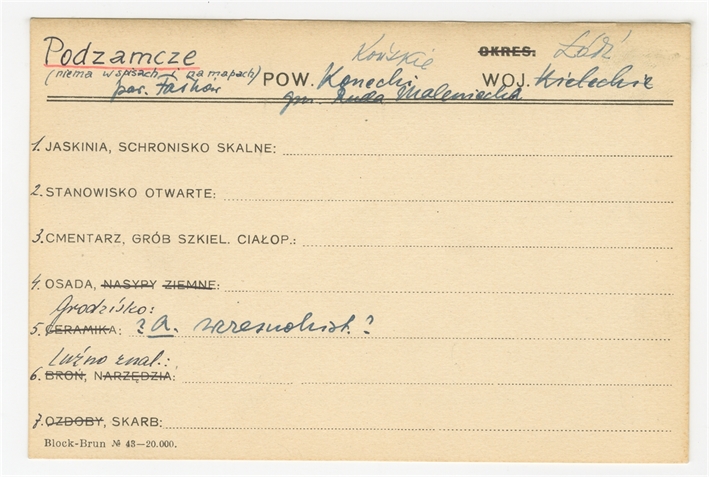 Podzamcze Końskie OKRES. Łódź
(niema w spisach i na mapach) POW. Konecki WOJ. Kieleckie
par. Fałków gm. Ruda Maleniecka
1. JASKINIA, SCHRONISKO SKALNE:
2. STANOWISKO OTWARTE:
3. CMENTARZ, GRÓB SZKIEL. CIAŁOP.:
4. OSADA, NASYPY ZIEMNE:
Grodzisko:
5. CERAMIKA: 2 a. wczesnohist.?
Luźno znal.:
6. BROŃ, NARZĘDZIA:
7. OZDOBY, SKARB:
Block-Brun № 43—20.000.